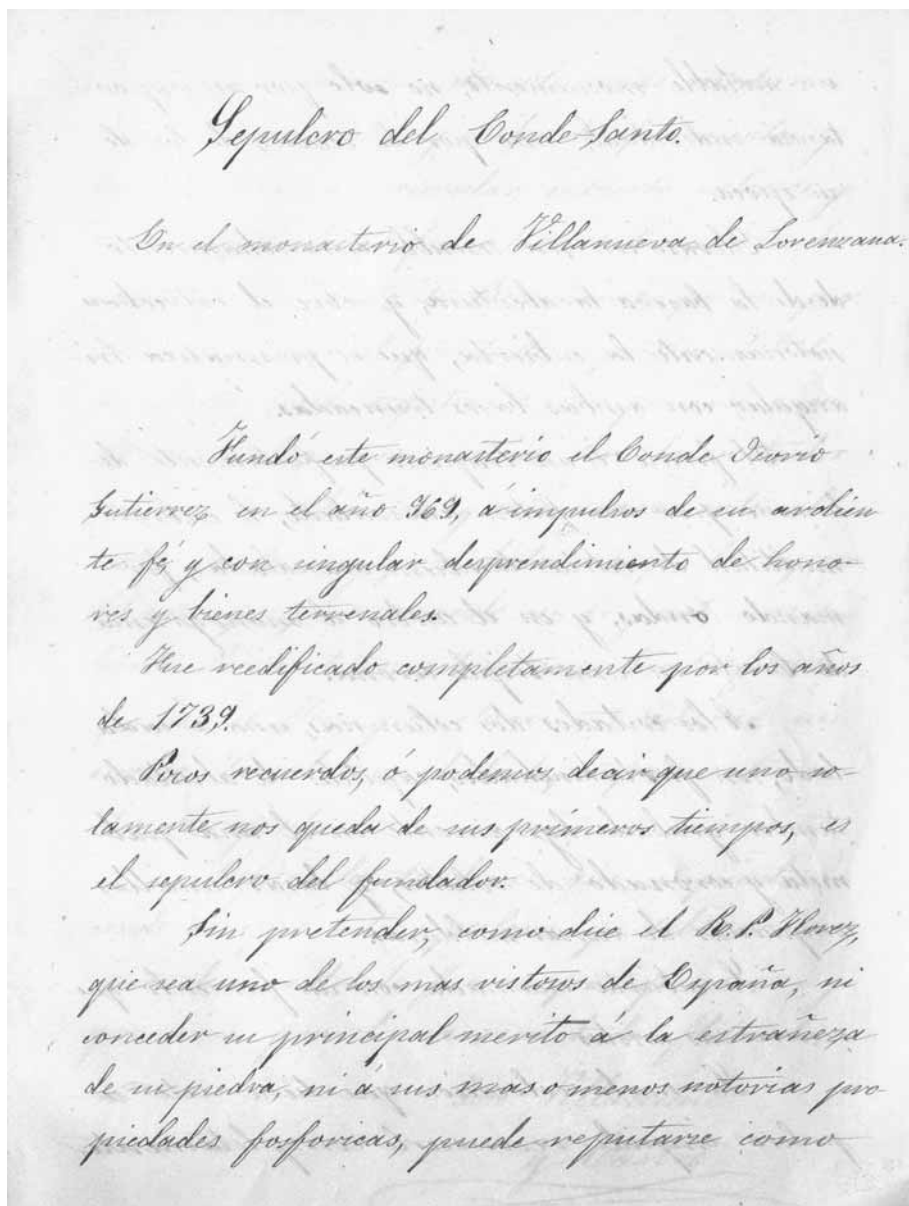 Sepulcro del Conde Santo.
En el monasterio de Villanueva de Lorenzana.
Fundó este monasterio el Conde Osorio
Gutierrez en el año 969, á impulsos de su ardien
te fé, y con singular desprendimiento de hono-
res y bienes terrenales.
Fue reedificado completamente por los años
de 1739.
Pocos recuerdos, ó podemos decir que uno so-
lamente nos queda de sus primeros tiempos, es
el sepulcro del fundador.
Sin pretender, como dice el R. P. Florez,
que sea uno de los mas vistosos de España, ni
conceder su principal merito á la estrañeza
de su piedra, ni á sus mas o menos notorias pro
piedades fosforicas, puede reputarse como